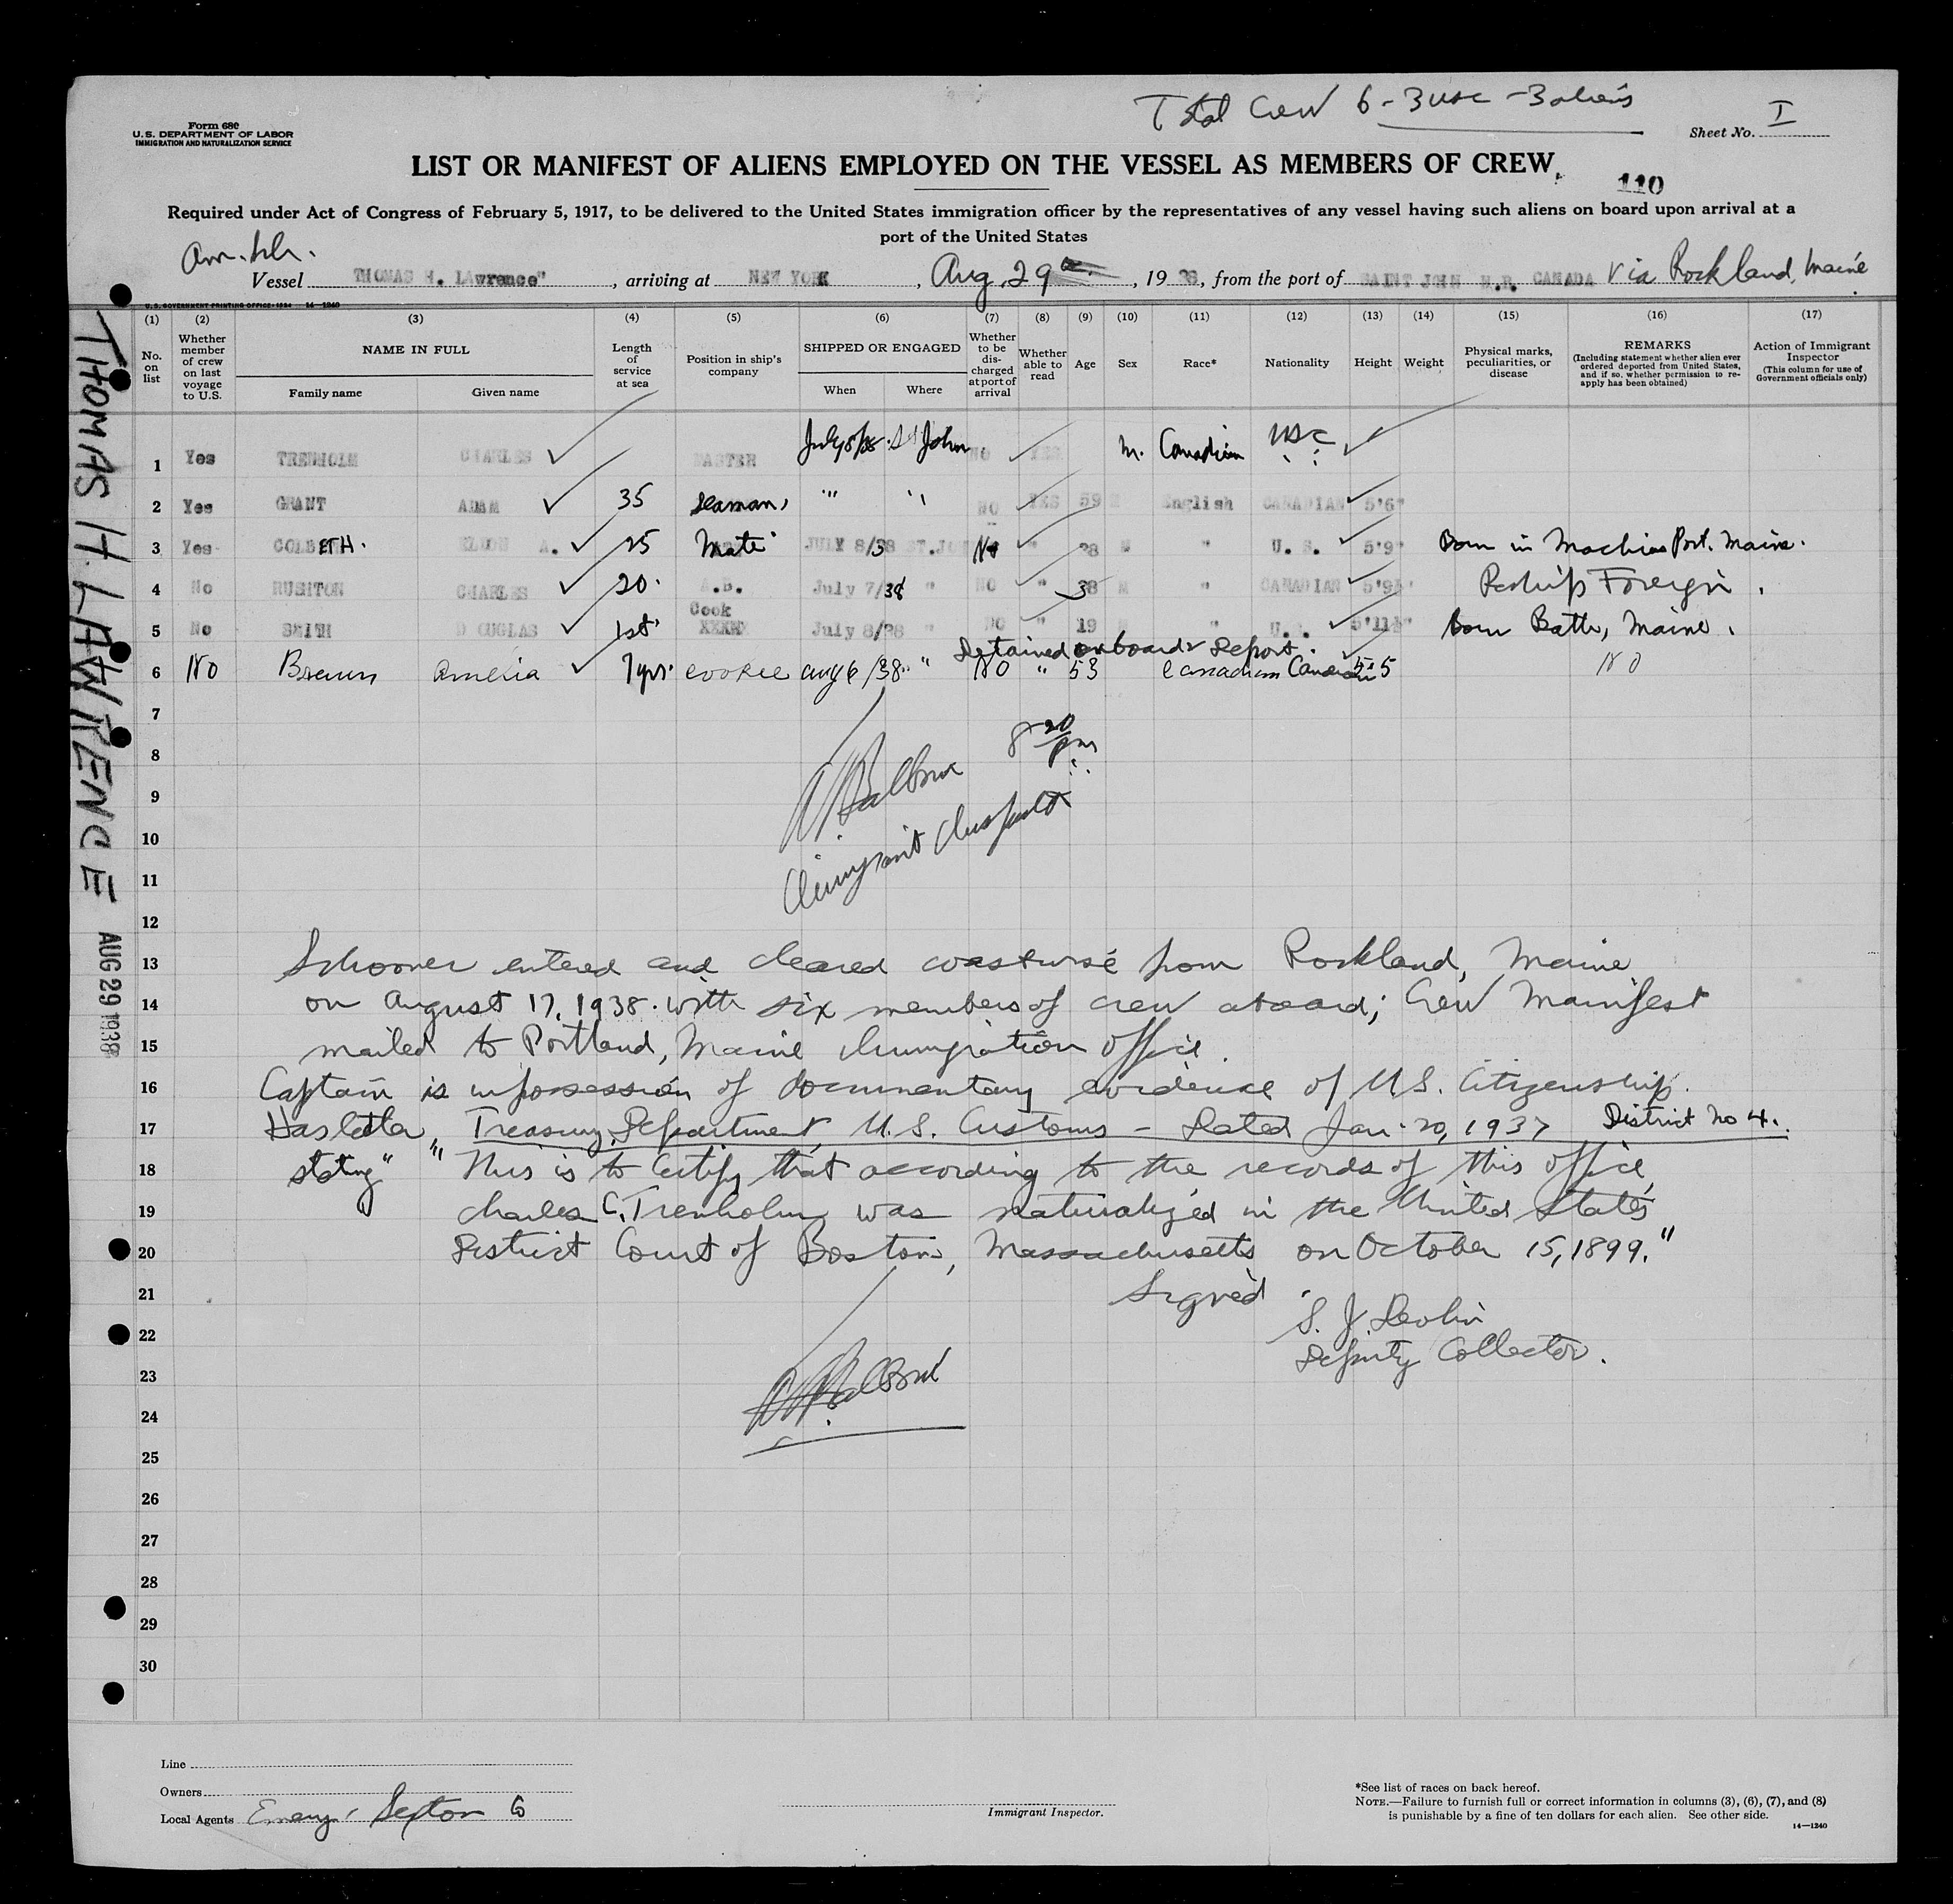 Total Crew 6 - 3 USC - 3 aliens
Form 680
U. S. DEPARTMENT OF LABOR
IMMIGRATION AND NATURALIZATION SERVICE
Sheet No. I
LIST OR MANIFEST OF ALIENS EMPLOYED ON THE VESSEL AS MEMBERS OF CREW
110
Required under Act of Congress of February 5, 1917, to be delivered to the United States immigration officer by the representatives of any vessel having such aliens on board upon arrival at a
port of the United States
Am. Sch.
Vessel THOMAS H. LAwrence", arriving at NEW YORK, Aug. 29, 1938, from the port of SAINT JOHN N.B. CANADA Via Rockland, Maine
U. S. GOVERNMENT PRINTING OFFICE: 1934 14—1240
(1) (2) (3) (4) (5) (6) (7) (8) (9) (10) (11) (12) (13) (14) (15) (16) (17)
No. on list
Whether member of crew on last voyage to U.S.
NAME IN FULL
Family name Given name
Length of service at sea
Position in ship's company
SHIPPED OR ENGAGED
When Where
Whether to be discharged at port of arrival
Whether able to read
Age
Sex
Race*
Nationality
Height
Weight
Physical marks, peculiarities, or disease
REMARKS
(Including statement whether alien ever ordered deported from United States, and if so, whether permission to reapply has been obtained)
Action of Immigrant Inspector
(This column for use of Government officials only)
1 Yes TRENHOLM CHARLES MASTER July 8/38 St John NO YES M. Canadian USC
2 Yes GRANT ADAM 35 Seaman " " NO YES 59 M English CANADIAN 5'6"
3 Yes COLBETH. A. 25 Mate JULY 8/38 ST. JOHN No " 28 M " U. S. 5'9" Born in Machias Port. Maine.
4 No RUSHTON CHARLES 20 A.B. July 7/38 " NO " 38 M " CANADIAN 5'9½" Reships Foreign.
5 No SMITH DOUGLAS 1st Cook July 8/38 " NO " 19 M " U.S. 5'11½" Born Bath, Maine.
Detained on board & Report.
6 No Brown Amelia 7 yrs. cookee Aug 6/38 " No " 53 Canadian Canadian 5'5 No
7
8 8 20 pm
9
10 Immigrant Inspector
11
12
13 Schooner entered and cleared coastwise from Rockland, Maine
14 on August 17, 1938. with six members of crew aboard; Crew Manifest
15 mailed to Portland, Maine Immigration office.
16 Captain is in possession of documentary evidence of U.S. Citizenship.
17 Has letter, Treasury Department, U.S. Customs - Dated Jan. 20, 1937 District No 4.
18 stating" "This is to certify that according to the records of this office,
19 Charles C. Trenholm was naturalized in the United States
20 District Court of Boston, Massachusetts on October 15, 1899."
21 Signed
22 S. J. Devlin
23 Deputy Collector.
24
25
26
27
28
29
30
THOMAS H. LAWRENCE
AUG 29 1938
Line
Owners
Local Agents Emery Sexton Co
Immigrant Inspector.
*See list of races on back hereof.
NOTE.—Failure to furnish full or correct information in columns (3), (6), (7), and (8)
is punishable by a fine of ten dollars for each alien. See other side.
14—1240